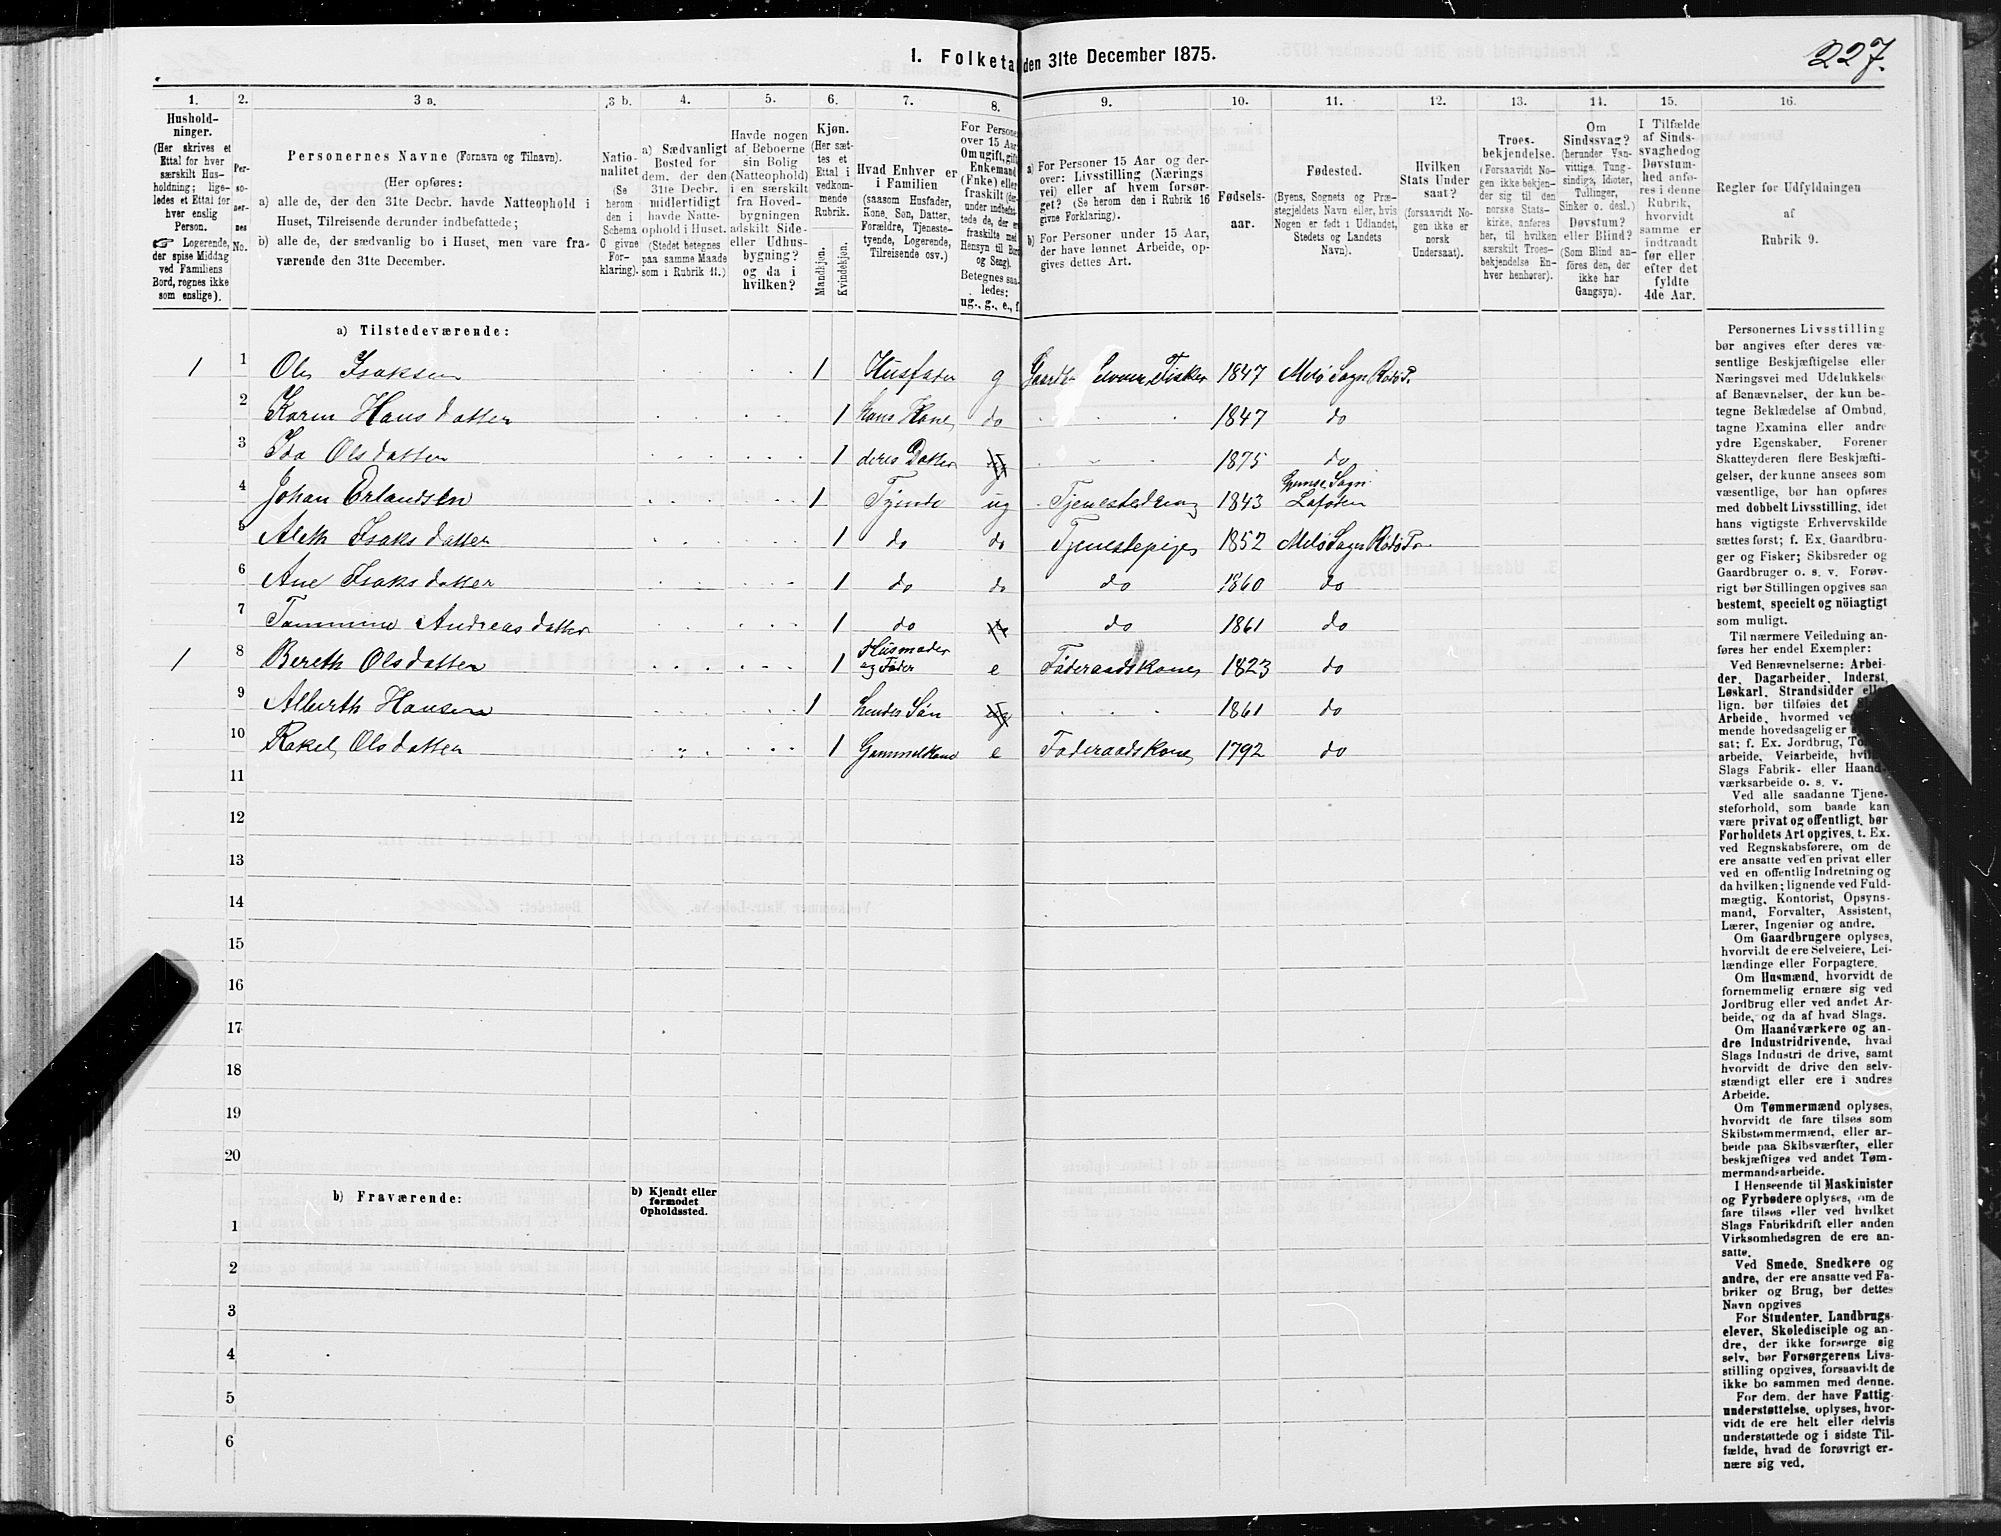 227.
1. Folketa den 31te December 1875.
1. 2. 3 a. 3 b. 4. 5. 6. 7. 8. 9. 10. 11. 12. 13. 14. 15. 16.
Hushold-
ninger.
(Her skrives et
Ettal for hver
særskilt Hus-
holdning; lige-
ledes et Ettal for
hver enslig
Person.
☞ Logerende,
der spise Middag
ved Familiens
Bord, regnes ikke
som enslige).
Per-
so-
ner-
nes
No.
Personernes Navne (Fornavn og Tilnavn).
(Her opføres:
a) alle de, der den 31te Decbr. havde Natteophold i
Huset, Tilreisende derunder indbefattede;
b) alle de, der sædvanlig bo i Huset, men vare fra-
værende den 31te December.
Natio-
nalitet
(Se
herom
den i
Schema
6 givne
For-
klaring).
a) Sædvanligt
Bosted for
dem, der den
31te Decbr.
midlertidigt
havde Natte-
ophold i Huset.
(Stedet betegnes
paa samme Maade
som i Rubrik 11.)
Havde nogen
af Beboerne
sin Bolig
(Natteophold)
i en særskilt
fra Hoved-
bygningen
adskilt Side-
eller Udhus-
bygning?
og da i
hvilken?
Kjøn.
(Her sæt-
tes et
Ettal i
vedkom-
mende
Rubrik.
Mandkjøn.
Kvindekjøn.
Hvad Enhver er
i Familien
(saasom Husfader,
Kone, Søn, Datter,
Forældre, Tjeneste-
tyende, Logerende,
Tilreisende osv.)
For Persone
over 15 Aar:
Om ugift, gift,
Enkemand
(Enke) eller
fraskilt (der-
under indbefat-
tede de, der ere
fraskilte med
Hensyn til Bord
og Seng).
Betegnes saa-
ledes:
ug., g., e., f.
a) For Personer 15 Aar og der-
over: Livsstilling (Nærings
vei) eller af hvem forsør-
get? (Se herom den i Rubrik 16
givne Forklaring.)
b) For Personer under 15 Aar,
der have lønnet Arbeide, op-
gives dettes Art.
Fødsels-
aar.
Fødested.
(Byens, Sognets og Præ-
stegjeldets Navn eller, hvis
Nogen er født i Udlandet,
Stedets og Landets
Navn).
Hvilken
Stats Under
saat?
(forsaavidt No-
gen ikke er
norsk
Undersaat).
Troes-
bekjendelse.
(Forsaavidt No-
gen ikke bekjen-
der sig til den
norske Stats-
kirke, anføres
her, til hvilken
særskilt Troes-
bekjendelse En-
hver henhører).
Om
Sindssvag?
(herunder Van-
vittige, Tung-
sindige, Idioter,
Tullinger,
Sinker o. desl.)
Døvstum?
eller Blind?
(Som Blind an-
føres den, der
ikke har
Gangsyn).
I Tilfælde
af Sinds-
svaghedog
Døvstum-
hed anfø-
res i denne
Rubrik,
hvorvidt
samme er
indtraadt
før eller
efter det
fyldte
4de Aar.
Regler for Udfyldningen
af
Rubrik 9.
a) Tilstedeværende:
1 1 Ole Isaksen 1 Husfader g Gaardbr Selveier Fisker 1847 Melø Sogn Rødø P.
2 Karen Hansdatter 1 hans Kone do 1847 do
3 Ida Olsdatter 1 deres Datter 1875 do
4 Johan Erlandsen 1 Tjende ug Tjenestedreng 1843 Sogn Lafoten
5 Aleth Isaksdatter 1 do do Tjenestepige 1852 Melø Sogn Rødø Pr
6 Ane Isaksdatter 1 do do do 1860 do
7 Tommine Andreasdatter 1 do do 1861 do
1 8 Bereth Olsdatter 1 Husmoder og Føder e Føderaadskone 1823 do
9 Alberth Hansen 1 hendes Søn ug 1861 do
10 Rakel Olsdatter 1 Gammelkone e Føderaadskone 1792 do
11
12
13
14
15
16
17
18
19
20
b) Fraværende:
b) Kjendt eller
formodet
Opholdssted.
1
2
3
4
5
6
Personernes Livsstilling
bør angives efter deres væ-
sentlige Beskjæftigelse eller
Næringsvei med Udelukkelse
af Benævnelser, der kun be-
tegne Beklædelse af Ombud,
tagne Examina eller andre
ydre Egenskaber. Forener
Skatteyderen flere Beskjæfti-
gelser, der kunne ansees som
væsentlige, bør han opføres
med dobbelt Livsstilling, idet
hans vigtigste Erhvervskilde
sættes først; f. Ex. Gaardbru-
ger og Fisker; Skibsreder og
Gaardbruger o. s. v. Forøv-
rigt bør Stillingen opgives saa
bestemt, specielt og nöiagtigt
som muligt.
Til nærmere Veiledning an-
føres her endel Exempler:
Ved Benævnelserne: Arbei-
der, Dagarbeider, Inderst,
Løskarl, Strandsidder elle
lign. bør tilføies det S
Arbeide, hvormed ve
mende hovedsagelig er
sat; f. Ex. Jordbrug, To
arbeide, Veiarbeide, hvil
Slags Fabrik- eller Haand-
værksarbeide o. s. v.
Ved alle saadanne Tjene-
steforhold, som baade kan
være privat og offentligt, bør
Forholdets Art opgives, t. Ex.
ved Regnskabsførere, om de
ere ansatte ved en privat eller
ved en offentlig Indretning og
da hvilken; lignende ved Fuld-
mægtig, Kontorist, Opsyns-
mand, Forvalter, Assistent,
Lærer, Ingeniør og andre.
Om Gaardbrugere oplyses,
hvorvidt de ere Selveiere, Lei-
lændinge eller Forpagtere.
Om Husmænd, hvorvidt de
fornemmelig ernære sig ved
Jordbrug eller ved andet Ar-
beide, og da af hvad Slags.
Om Haandværkere og an-
dre Industridrivende, hvad
Slags Industri de drive, samt
hvorvidt de drive den selv-
stændigt eller ere i andres
Arbeide.
Om Tømmermænd oplyses,
hvorvidt de fare tilsøs som
Skibstømmermænd, eller ar-
beide paa Skibsværfter, eller
beskjæftiges ved andet Tøm-
mermandsarbeide.
I Henseende til Maskinister
og Fyrbødere oplyses, om de
fare tilsøs eller ved hvilket
Slags Fabrikdrift eller anden
Virksomhedsgren de ere an-
satte.
Ved Smede, Snedkere og
andre, der ere ansatte ved Fa-
briker og Brug, bør dettes
Navn opgives
For Studenter, Landbrugs-
elever, Skoledisciple og an-
dre, der ikke forsørge sig
selv, bør Forsørgerens Livs-
stilling opgives, forsaavidt de
ikke bo sammen med denne.
For dem, der have Fattig-
understøttelse, oplyses, hvor-
vidt de ere helt eller delvis
understøttede og i sidste Til-
fælde, hvad de forøvrigt er-
nære sig ved.